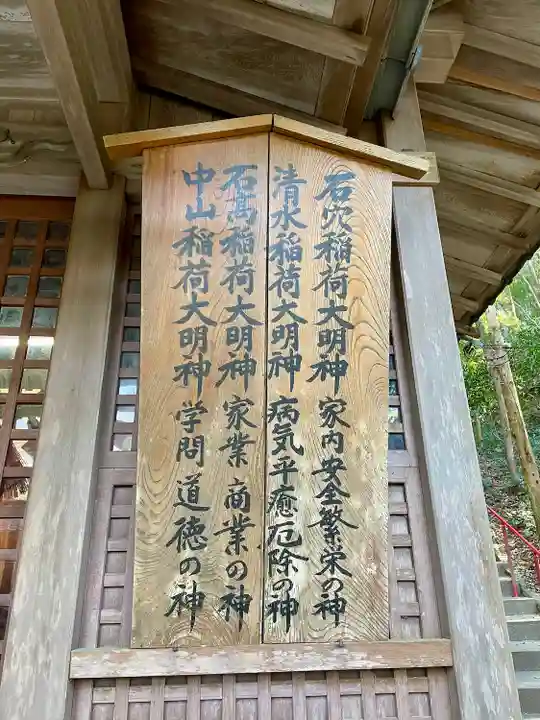 石穴稲荷大明神 家内安全繁栄の神
清水稲荷大明神 病気平癒厄除の神
石髙稲荷大明神 家業商業の神
中山稲荷大明神 学問道徳の神